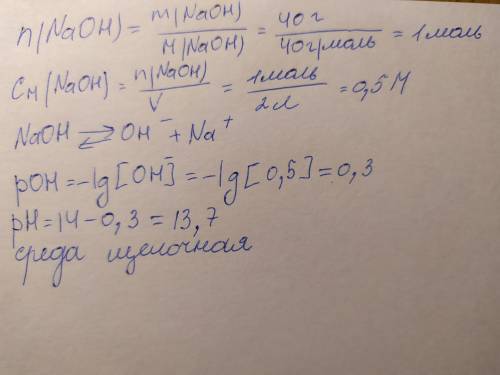 n(NaOH) = m(NaOH)/M(NaOH) = 40 г/40 г/моль = 1 моль
Cм(NaOH) = n(NaOH)/V = 1 моль/2 л = 0,5 М
NaOH ⇄ OH⁻ + Na⁺
pOH = -lg[OH⁻] = -lg[0,5] = 0,3
pH = 14 - 0,3 = 13,7
среда щелочная